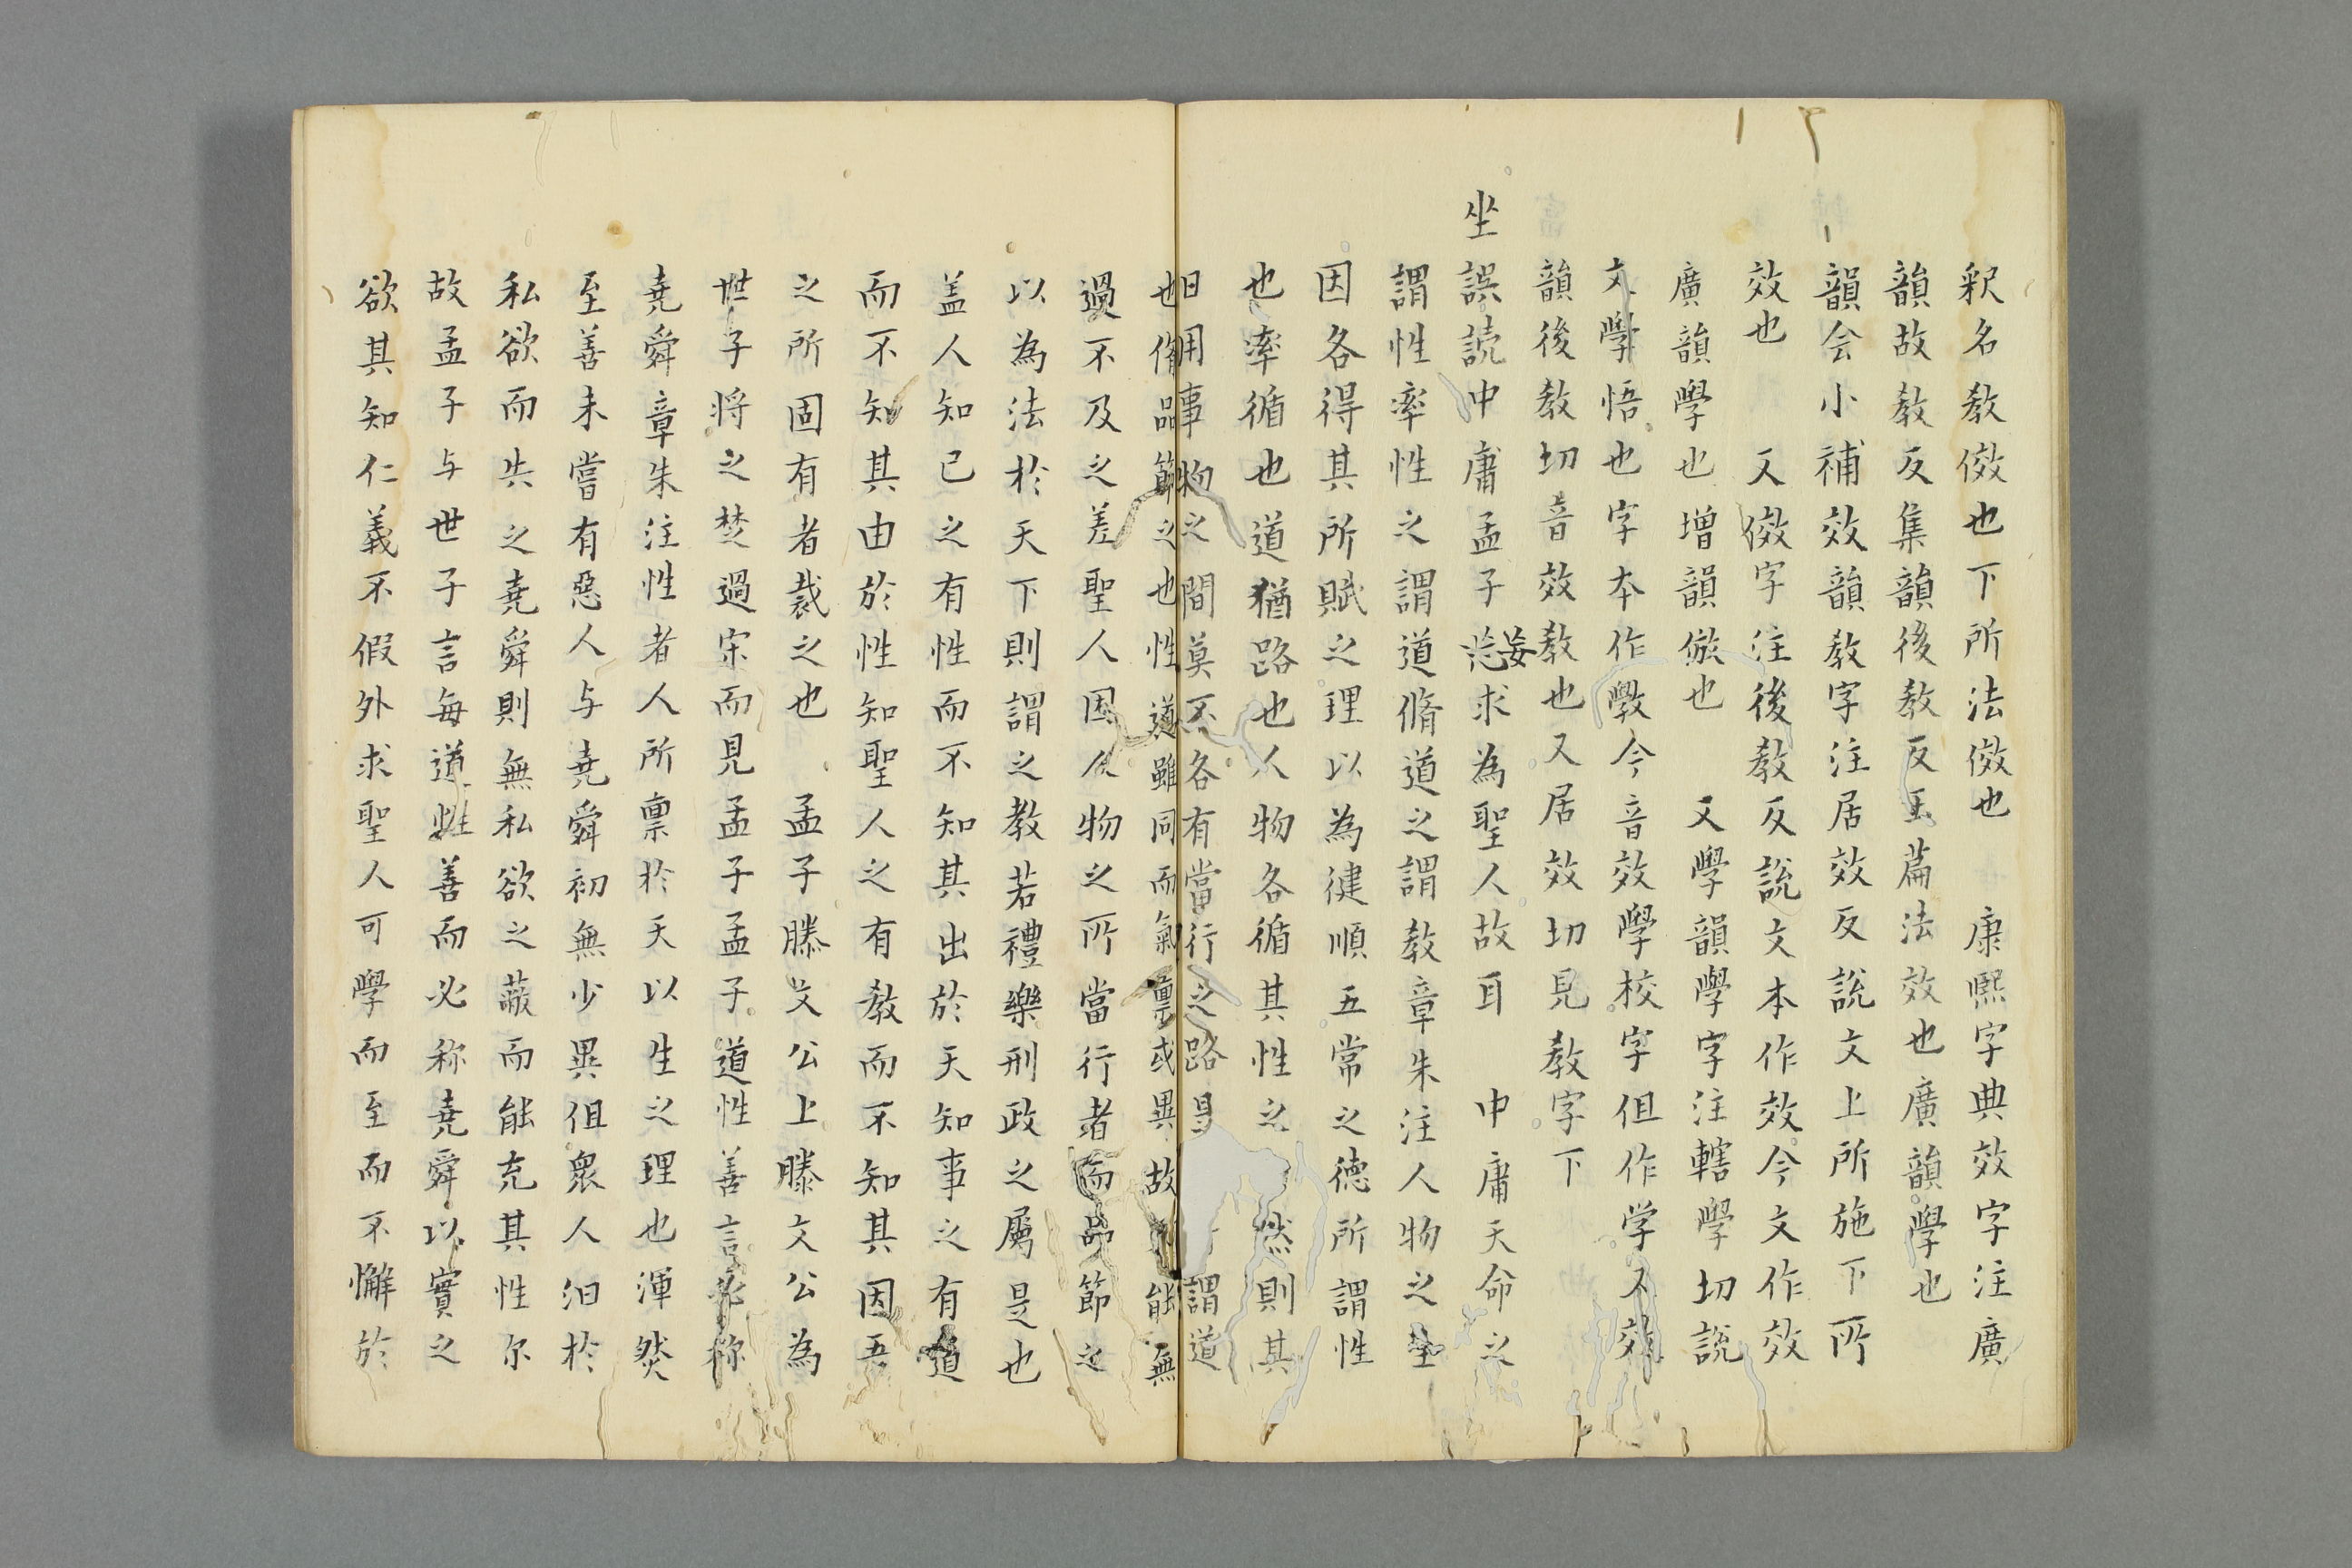 釈名教傚也下所法傚也　康熙字典效字注廣
韻故教反集韻後教反玉篇法效也廣韻學也
韻会小補效韻教字注居效反說文上所施下所
效也　又傚字注後教反說文本作效今文作效
廣韻學也增韻倣也　又學韻學字注轄學切說
文學悟也字本作斆今音效學校字但作学不效
韻後教切音效教也又居效切見教字下
坐誤読中庸孟子妄求為聖人故耳　中庸天命之
謂性率性之謂道脩道之謂教章朱注人物之生
因各得其所賦之理以為健順五常之德所謂性
也率循也道猶路也人物各循其性之然則其
日用事物之間莫不各有當行之路是謂道
也脩品節之也性道雖同而氣稟或異故能無
過不及之差聖人因人物之所當行者而品節之
以為法於天下則謂之教若禮樂刑政之屬是也
盖人知己之有性而不知其出於天知事之有道
而不知其由於性知聖人之有教而不知其因吾
之所固有者裁之也　孟子滕文公上滕文公為
世子将之楚過宋而見孟子孟子道性善言必称
堯舜章朱注性者人所稟於天以生之理也渾然
至善未嘗有惡人与堯舜初無少異但衆人汨於
私欲而失之堯舜則無私欲之蔽而能充其性尔
故孟子与世子言每道性善而必称堯舜以實之
欲其知仁義不假外求聖人可學而至而不懈於